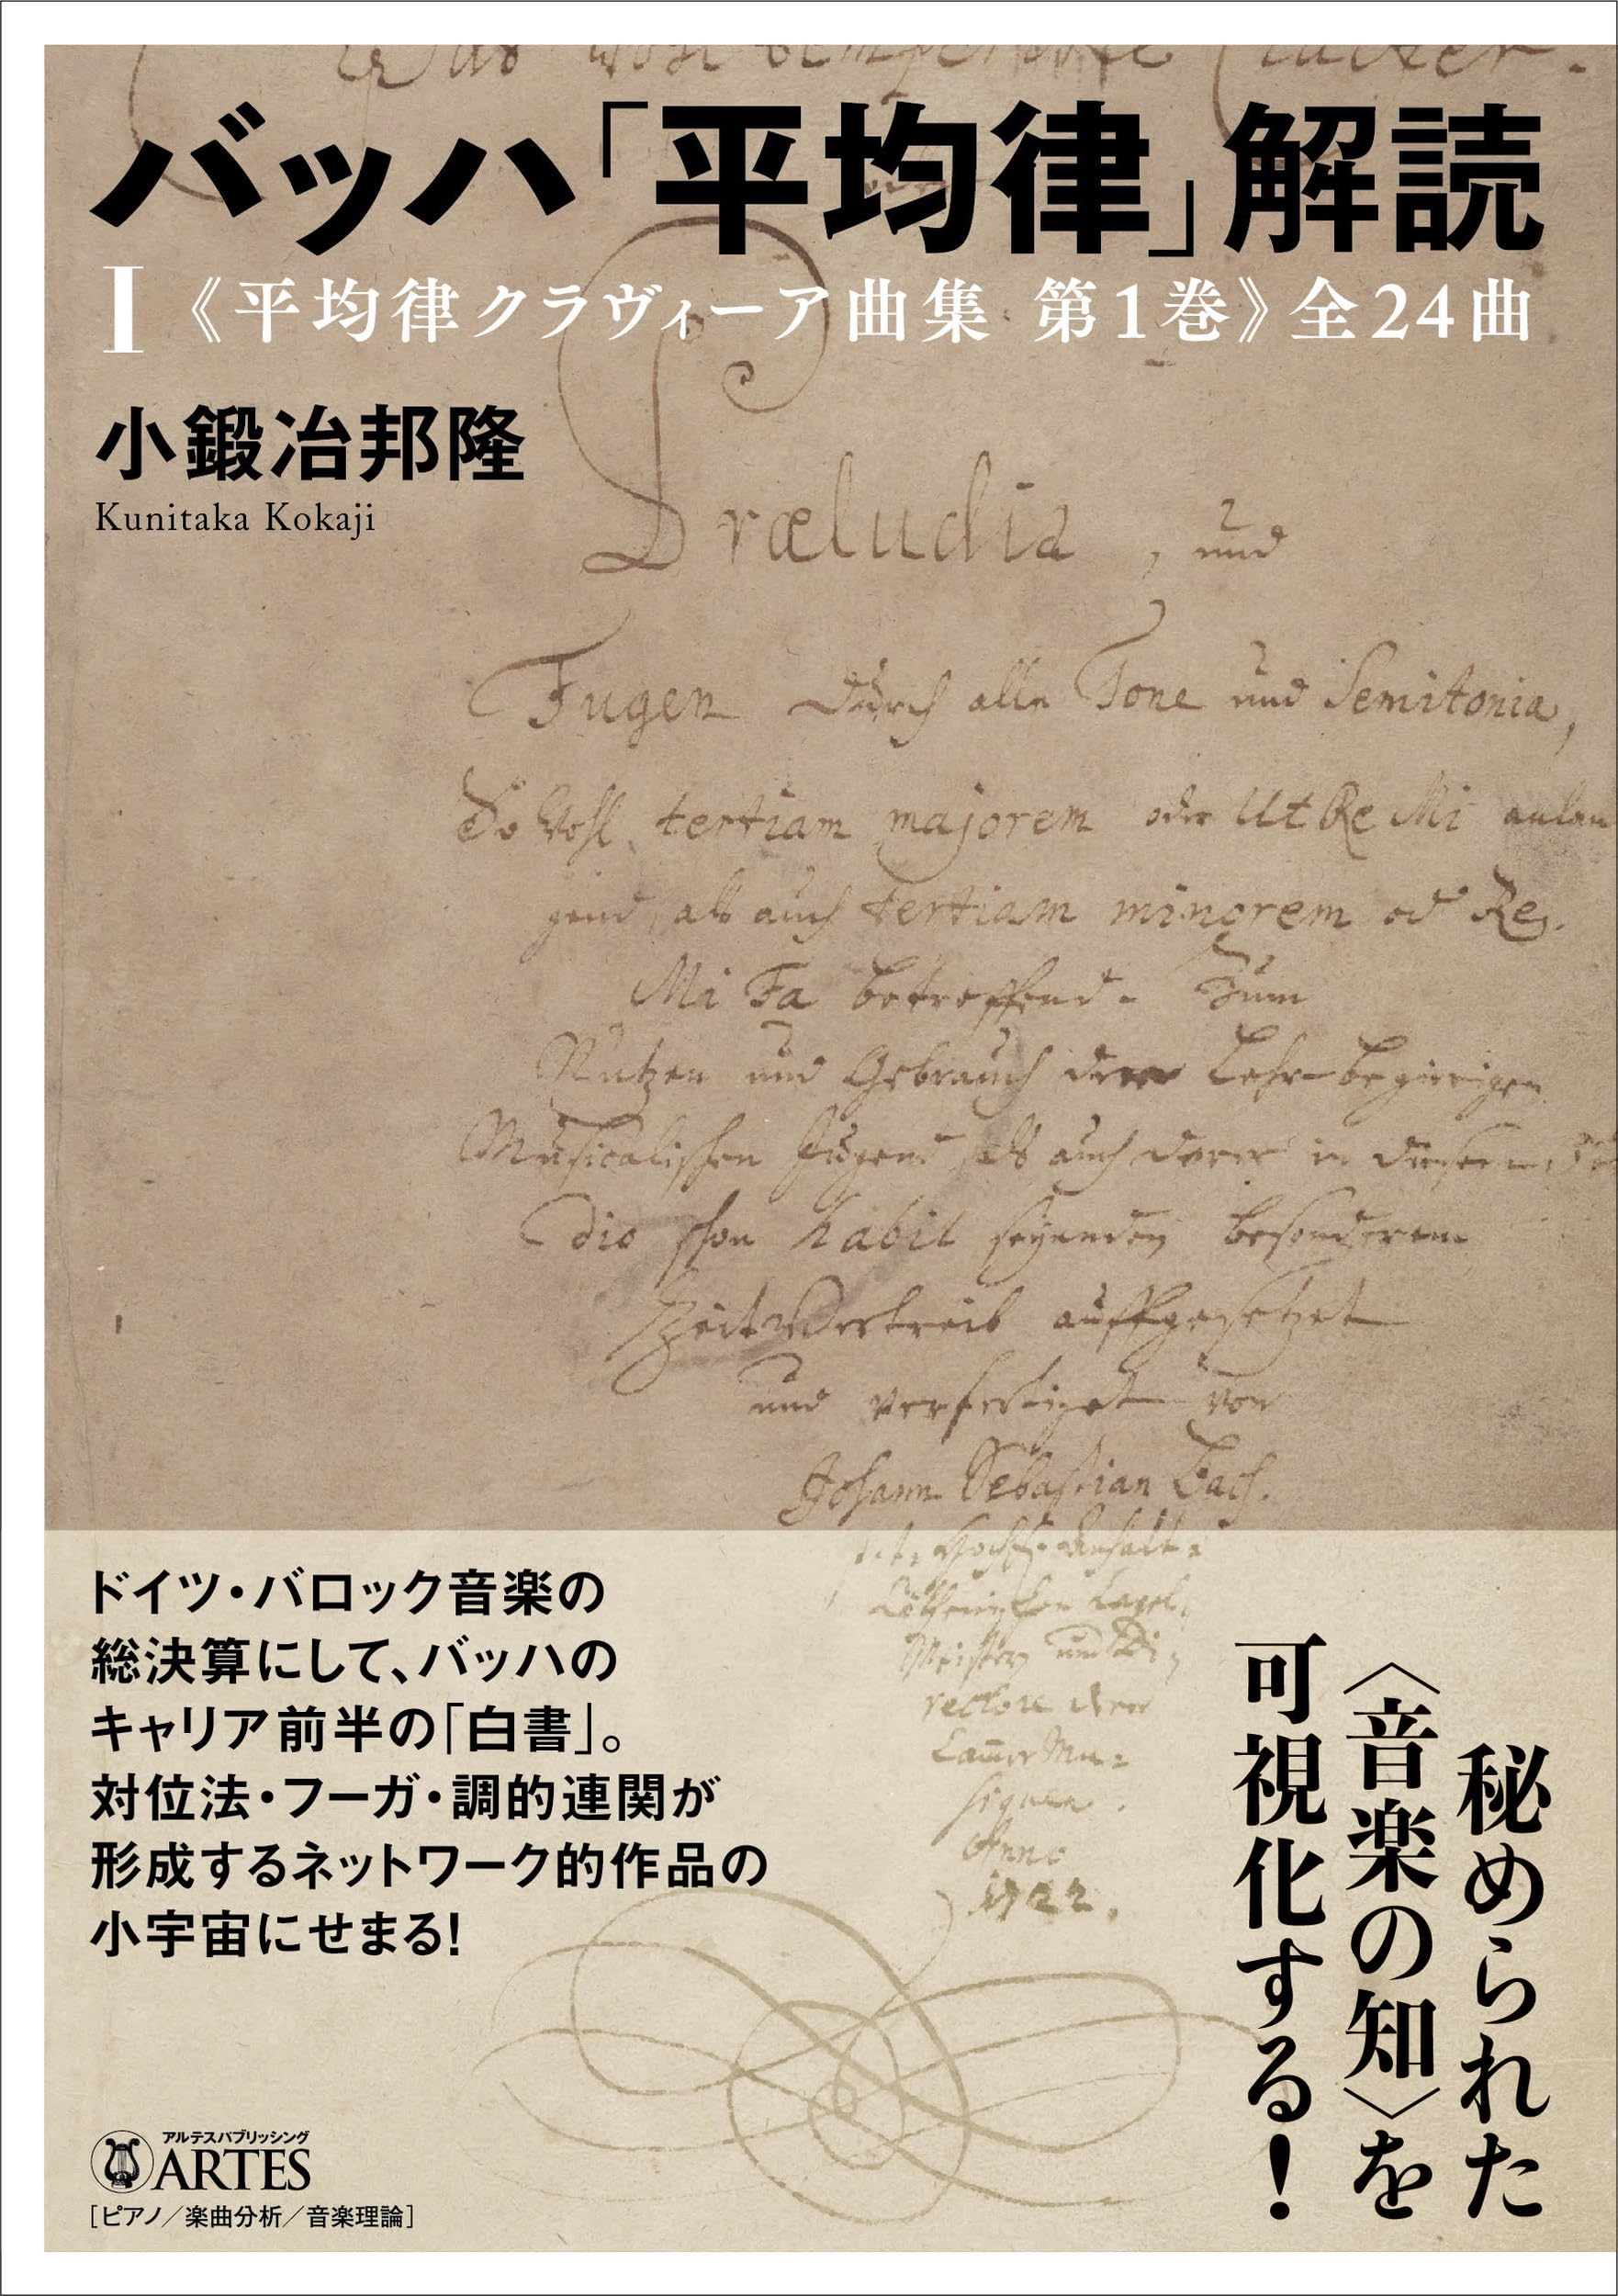 Das Wohl temperirte Clavier.
バッハ「平均律」解読
I 《平均律クラヴィーア曲集 第1巻》全24曲
小鍛冶邦隆
Kunitaka Kokaji
Præludia, und
Fugen durch alle Tone und Semitonia,
So wohl tertiam majorem oder Ut Re Mi anlan
gend, als auch tertiam minorem od Re
Mi Fa betreffend. Zum
Nutzen und Gebrauch der Lehr-begierigen
Musicalischen Jugend, als auch derer in diesem
dio schon habil seyenden besonderem
ZeitVertreib auffgesetzet
und verfertiget von
Johann Sebastian Bach.
Hochf. Anhalt
Cöthenischen Capel-
Meistern und Di-
rectore derer
Cam̅er Mu-
siquen.
Anno
1722.
ドイツ・バロック音楽の
総決算にして、バッハの
キャリア前半の「白書」。
対位法・フーガ・調的連関が
形成するネットワーク的作品の
小宇宙にせまる!
秘められた
〈音楽の知〉を
可視化する!
アルテスパブリッシング
ARTES
[ピアノ/楽曲分析/音楽理論]